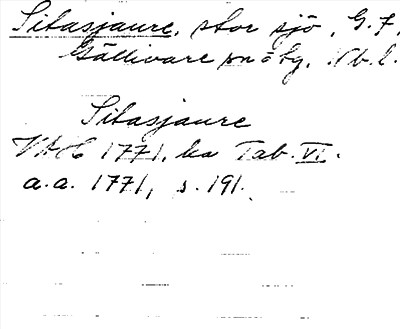 Sitasjaure, stor sjö, G.f.
Gällivare sn o bg, Nb. l.
Sitasjaure
VAH 1771, ka Tab. VI.
a.a. 1771, s. 191.